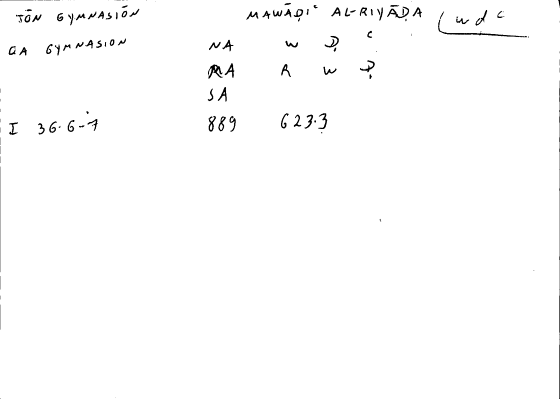 TŌN GYMNASIŌN MAWĀḌIʿ AL-RIYĀḌA wdʿ
GA GYMNASION NA W Ḍ ʿ
MA R W Ḍ
SA
I 36.6-7 889 623.3